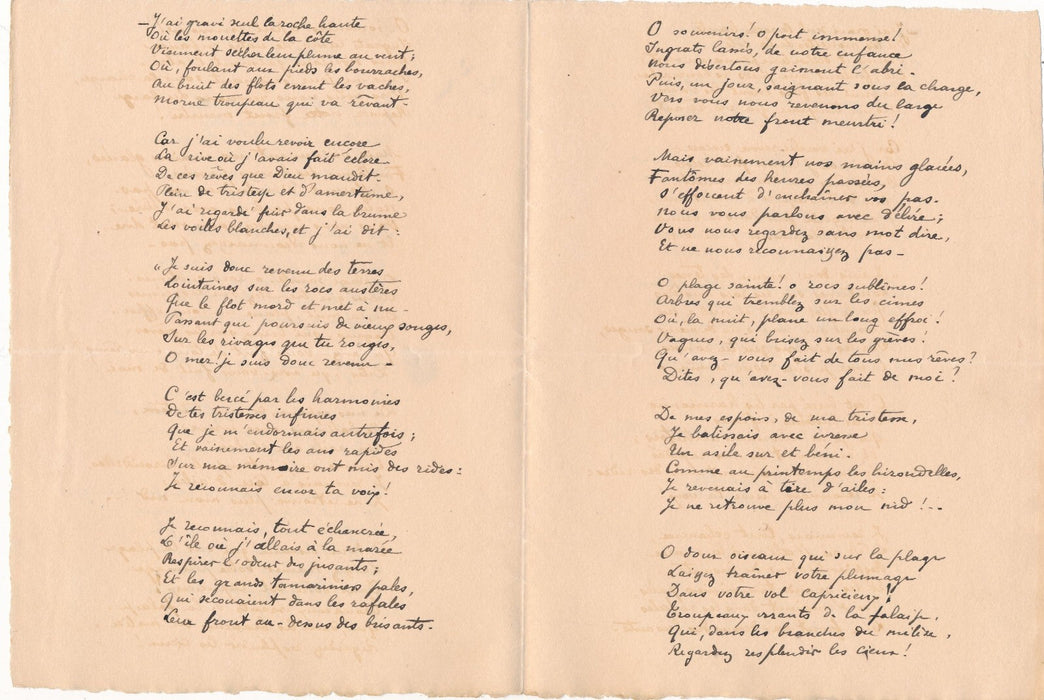 — J'ai gravi seul la roche haute
Où les mouettes de la côte
Viennent sécher leur plume au vent ;
Où, foulant aux pieds les bourraches,
Au bruit des flots errent les vaches,
Morne troupeau qui va rêvant -
Car j'ai voulu revoir encore
La rive où j'avais fait éclore
De ces rêves que Dieu maudit.
Plein de tristesse et d'amertume,
J'ai regardé fuir dans la brume
Les voiles blanches, et j'ai dit :
"Je suis donc revenu des terres
Lointaines sur les rocs austères
Que le flot mord et met à nu -
Passant qui poursuis de vieux songes,
Sur les rivages que tu ronges,
O mer ! je suis donc revenu -
C'est bercé par les harmonies
De tes tristesses infinies
Que je m'endormais autrefois ;
Et vainement les ans rapides
Sur ma mémoire ont mis des rides :
Je reconnais encor ta voix !
Je reconnais, tout échancrée,
L'île où j'allais à la marée
Respirer l'odeur des jusants ;
Et les grands tamariniers pâles,
Qui secouaient dans les rafales
Leur front au-dessus des brisants -
O souvenirs ! O port immense !
Ingrats lassés, de votre enfance
Nous désertons gaiment l'abri -
Puis, un jour, saignant sous la charge,
Vers vous nous revenons du large
Reposer notre front meurtri !
Mais vainement nos mains glacées,
Fantômes des heures passées,
S'efforcent d'enchaîner vos pas -
Nous vous parlons avec délire ;
Vous nous regardez sans mot dire,
Et ne nous reconnaissez pas -
O plage sainte ! o rocs sublimes !
Arbres qui tremblez sur les cimes
Où, la nuit, plane un long effroi !
Vagues, qui brisez sur les grèves !
Qu'avez-vous fait de tous mes rêves ?
Dites, qu'avez-vous fait de moi ?
De mes espoirs, de ma tristesse,
Je batissais avec ivresse
Un asile sur et béni -
Comme au printemps les hirondelles,
Je revenais à tire d'ailes :
Je ne retrouve plus mon nid ! . .
O doux oiseaux qui sur la plage
Laissez traîner votre plumage
Dans votre vol capricieux !
Troupeaux errants de la falaise,
Qui, dans les branches du mélèze,
Regardez resplendir les cieux !